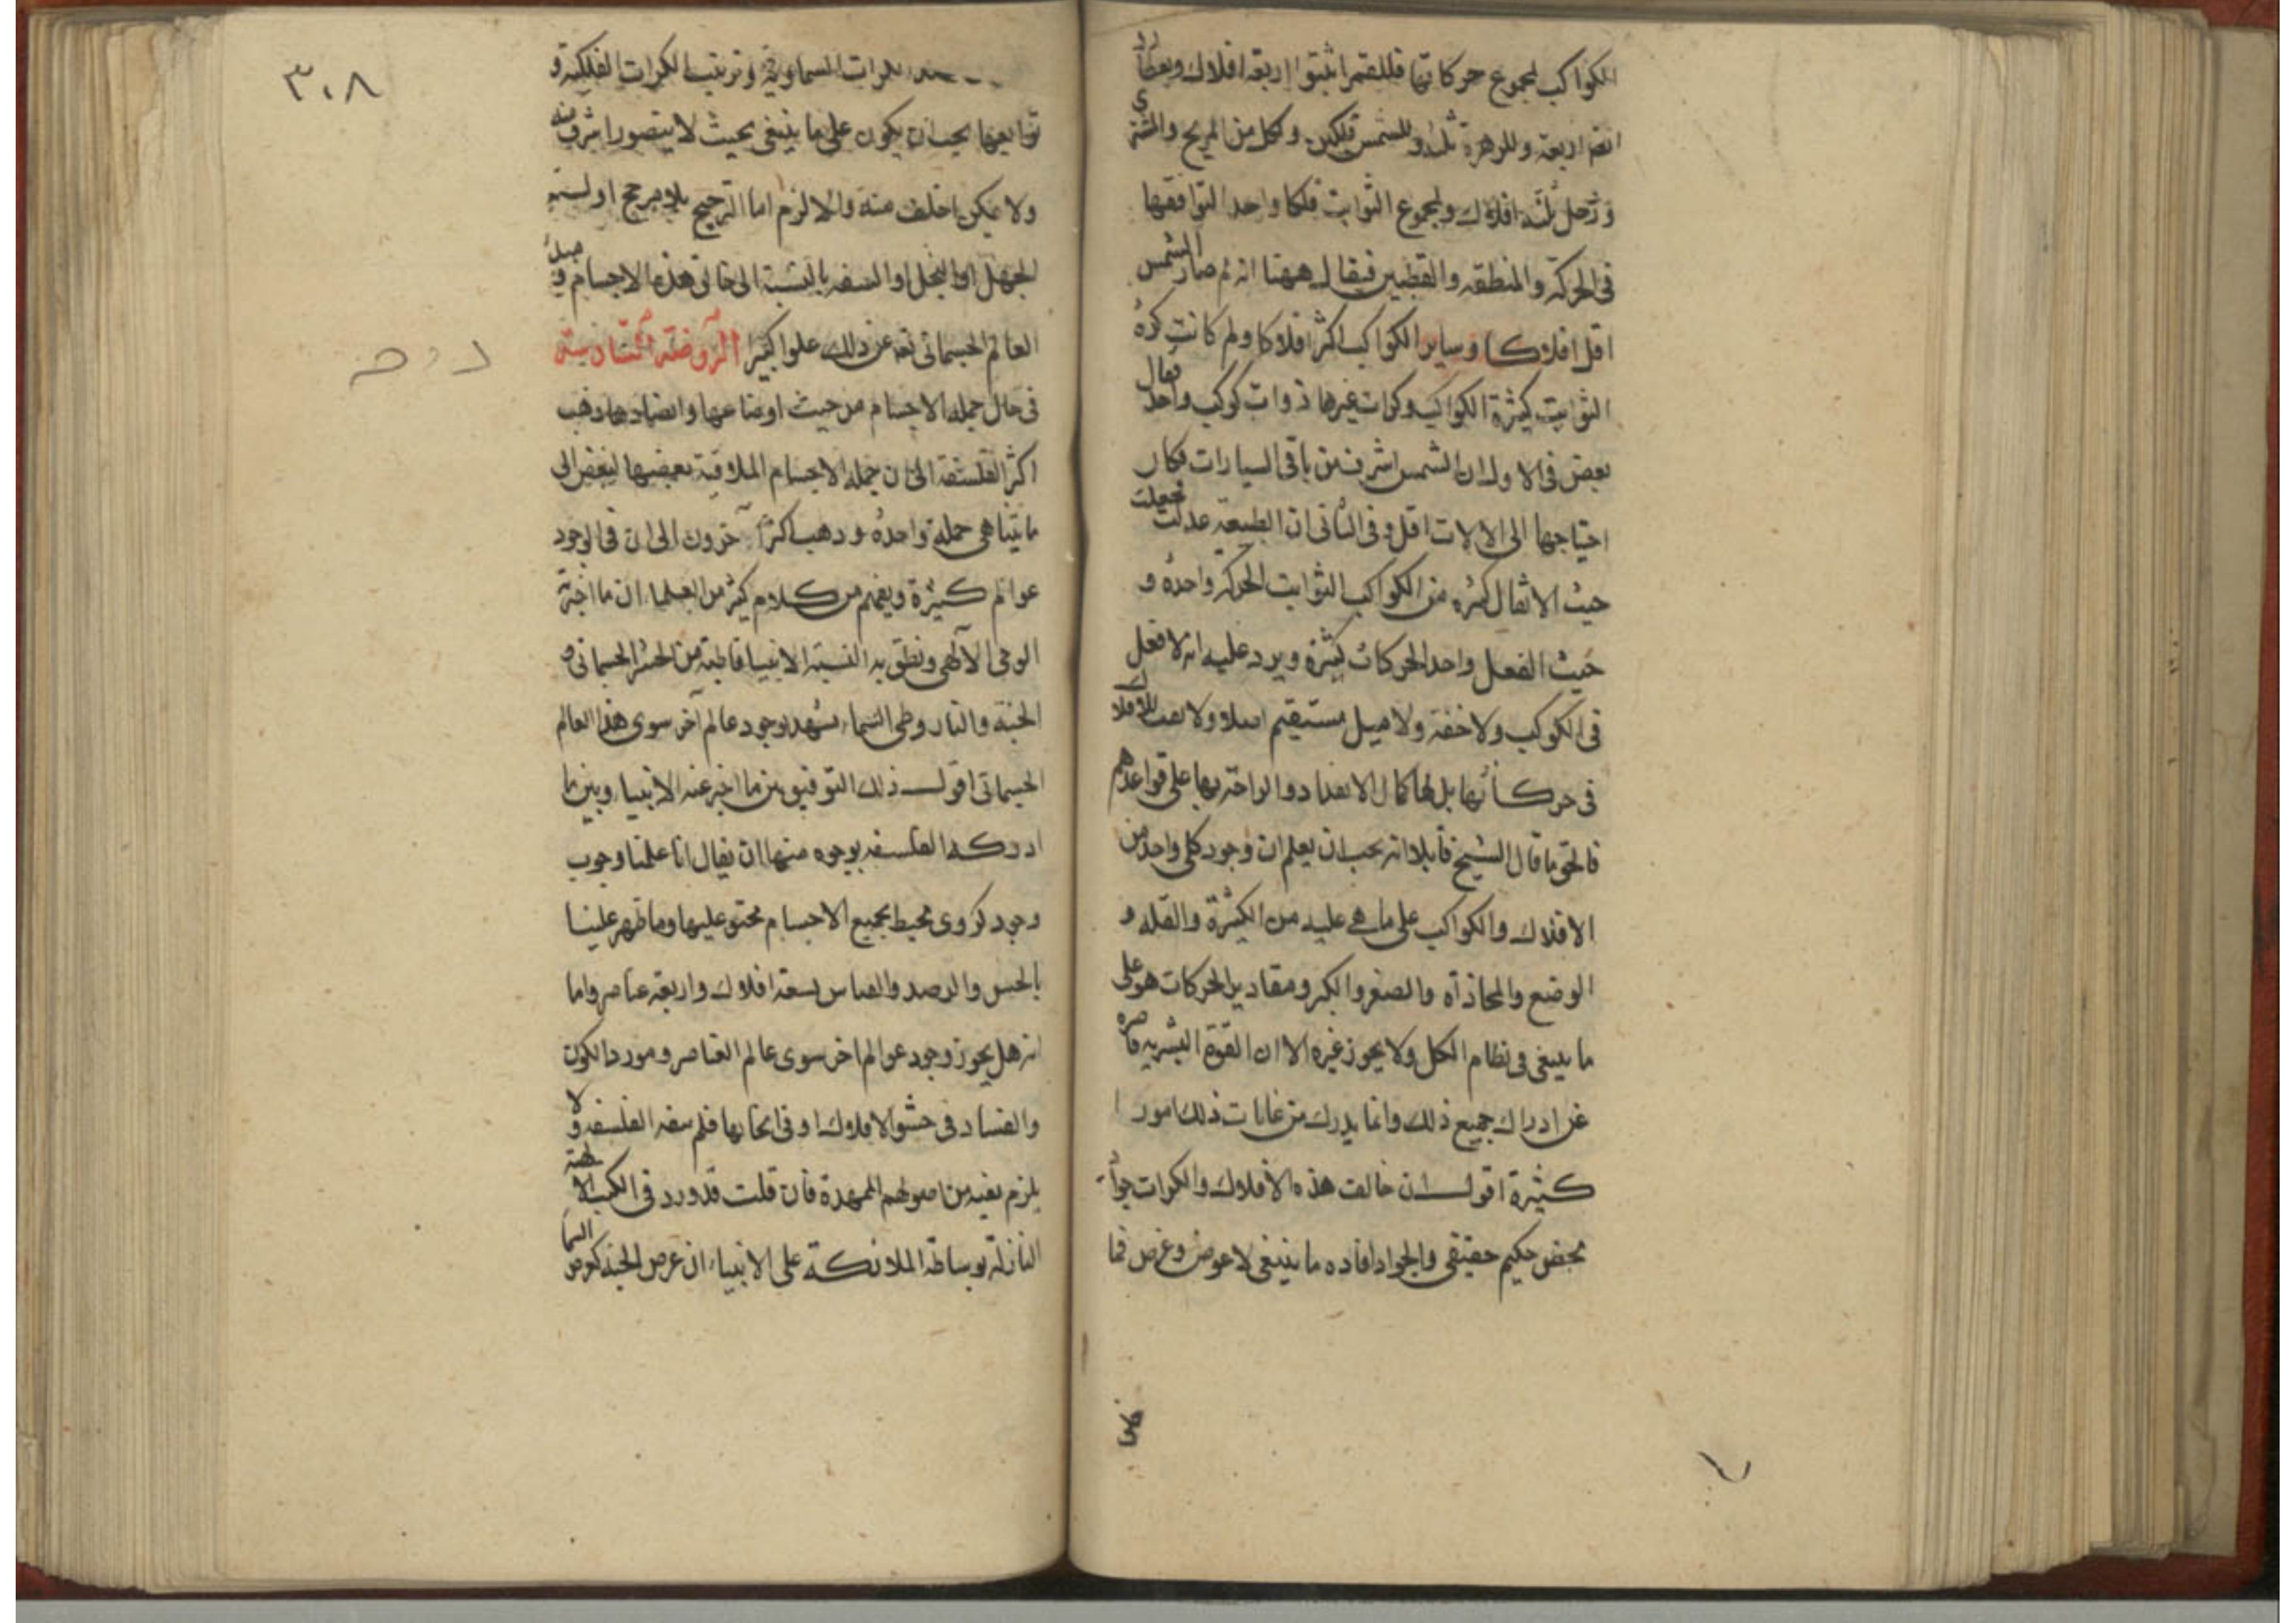 الكواكب لمجموع حركاتها فللقمر اثبتوا اربعة افلاك ولعطارد
ايضا اربعة وللزهرة ثلثة وللشمس فلكين ولكل من المريخ والمشتري
وزحل ثلثة افلاك ولمجموع الثوابت فلكا واحدا لتوافقها
في الحركة والمنطقة والقطبين فيقال ههنا انه لم صار الشمس
اقل افلاكا وساير الكواكب اكثر افلاكا ولم كانت كرة
الثوابت كثيرة الكواكب وكرات غيرها ذوات كوكب واحد فقال
بعض في الاول ان الشمس اشرف من باقي السيارات فكان
احتياجها الى الالات اقل وفي الثاني ان الطبيعة عدلت فجعلت
حيث الاثقال كثيرة من الكواكب الثوابت الحركة واحدة و
حيث الفعل واحد الحركات كثيرة ويرد عليه انه لا فعل
في الكوكب ولا خفة ولا ميل مستقيم اصلا ولا تعب للافلاك
في حركاتها بل لها كمال الالتذاذ والراحة بها على قواعدهم
فالحق ما قال الشيخ قايلا انه يجب ان يعلم ان وجود كل واحد من
الافلاك والكواكب على ما هي عليه من الكثرة والقلة و
الوضع والمحاذاة والصغر والكبر ومقادير الحركات هو على
ما ينبغي في نظام الكل ولا يجوز غيره الا ان القوة البشرية قاصرة
عن ادراك جميع ذلك وانما يدرك من غايات ذلك امورا
كثيرة اقول ان خالق هذه الافلاك والكرات جواد
محض حكيم حقيقي والجواد افادة ما ينبغي لا عوض وغرض فما
فلا
٣٠٨
الكرات السماوية وترتيب الكرات الفلكية و
توابعها يجب ان يكون على ما ينبغي بحيث لا يتصور اشرف منه
ولا يمكن اخلف منه والا لزم اما الترجيح بلا مرجح او نسبة
الجهل او البخل او السفه بالنسبة الى خالق هذه الاجسام ومبدأ
العالم الجسماني تعه عن ذلك علوا كبيرا الروضة السادسة
في حال جملة الاجسام من حيث اوضاعها وانضمادها ذهب
اكثر الفلسفة الى ان جملة الاجسام الملاقية بعضها لبعض الى
ما يتناهى جملة واحدة وذهب اكثر آخرون الى ان في الوجود
عوالم كثيرة ويفهم من كلام كثير من العلما ان ما اخبر به
الوحي الآلهي ونطق به السنة الانبيا قاطبة من الحشر الجسماني و
الجنة والنار وطي السماء يشهد بوجود عالم آخر سوى هذا العالم
الجسماني اقول ذلك التوفيق بين ما اخبر عنه الانبيا وبين ما
ادركه الفلسفة بوجوه منها ان يقال انا علمنا وجوب
وجود كروي محيط بجميع الاجسام محتو عليها وما ظهر علينا
بالحس والرصد والقياس تسعة افلاك واربعة عناصر واما
انه هل يجوز وجود عوالم اخر سوى عالم العناصر ومورد الكون
والفساد في حشو الافلاك او في اثخانها فلم ينفه الفلسفة ولا
يلزم نفيه من اصولهم الممهدة فان قلت قد ورد في الكتب الالهية
النازلة بوساطة الملائكة على الانبياء ان عرض الجنة كعرض السما